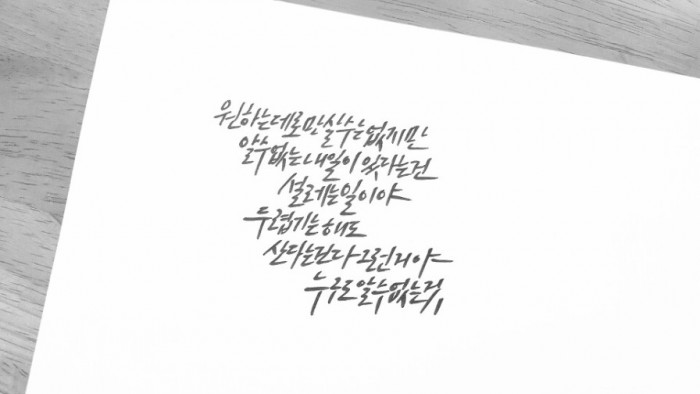 원하는데로만 살수는 없지만
알수없는 내일이 있다는건
설레는 일이야
두렵기는 해도
산다는건 다 그런거야
누구도 알수없는거,